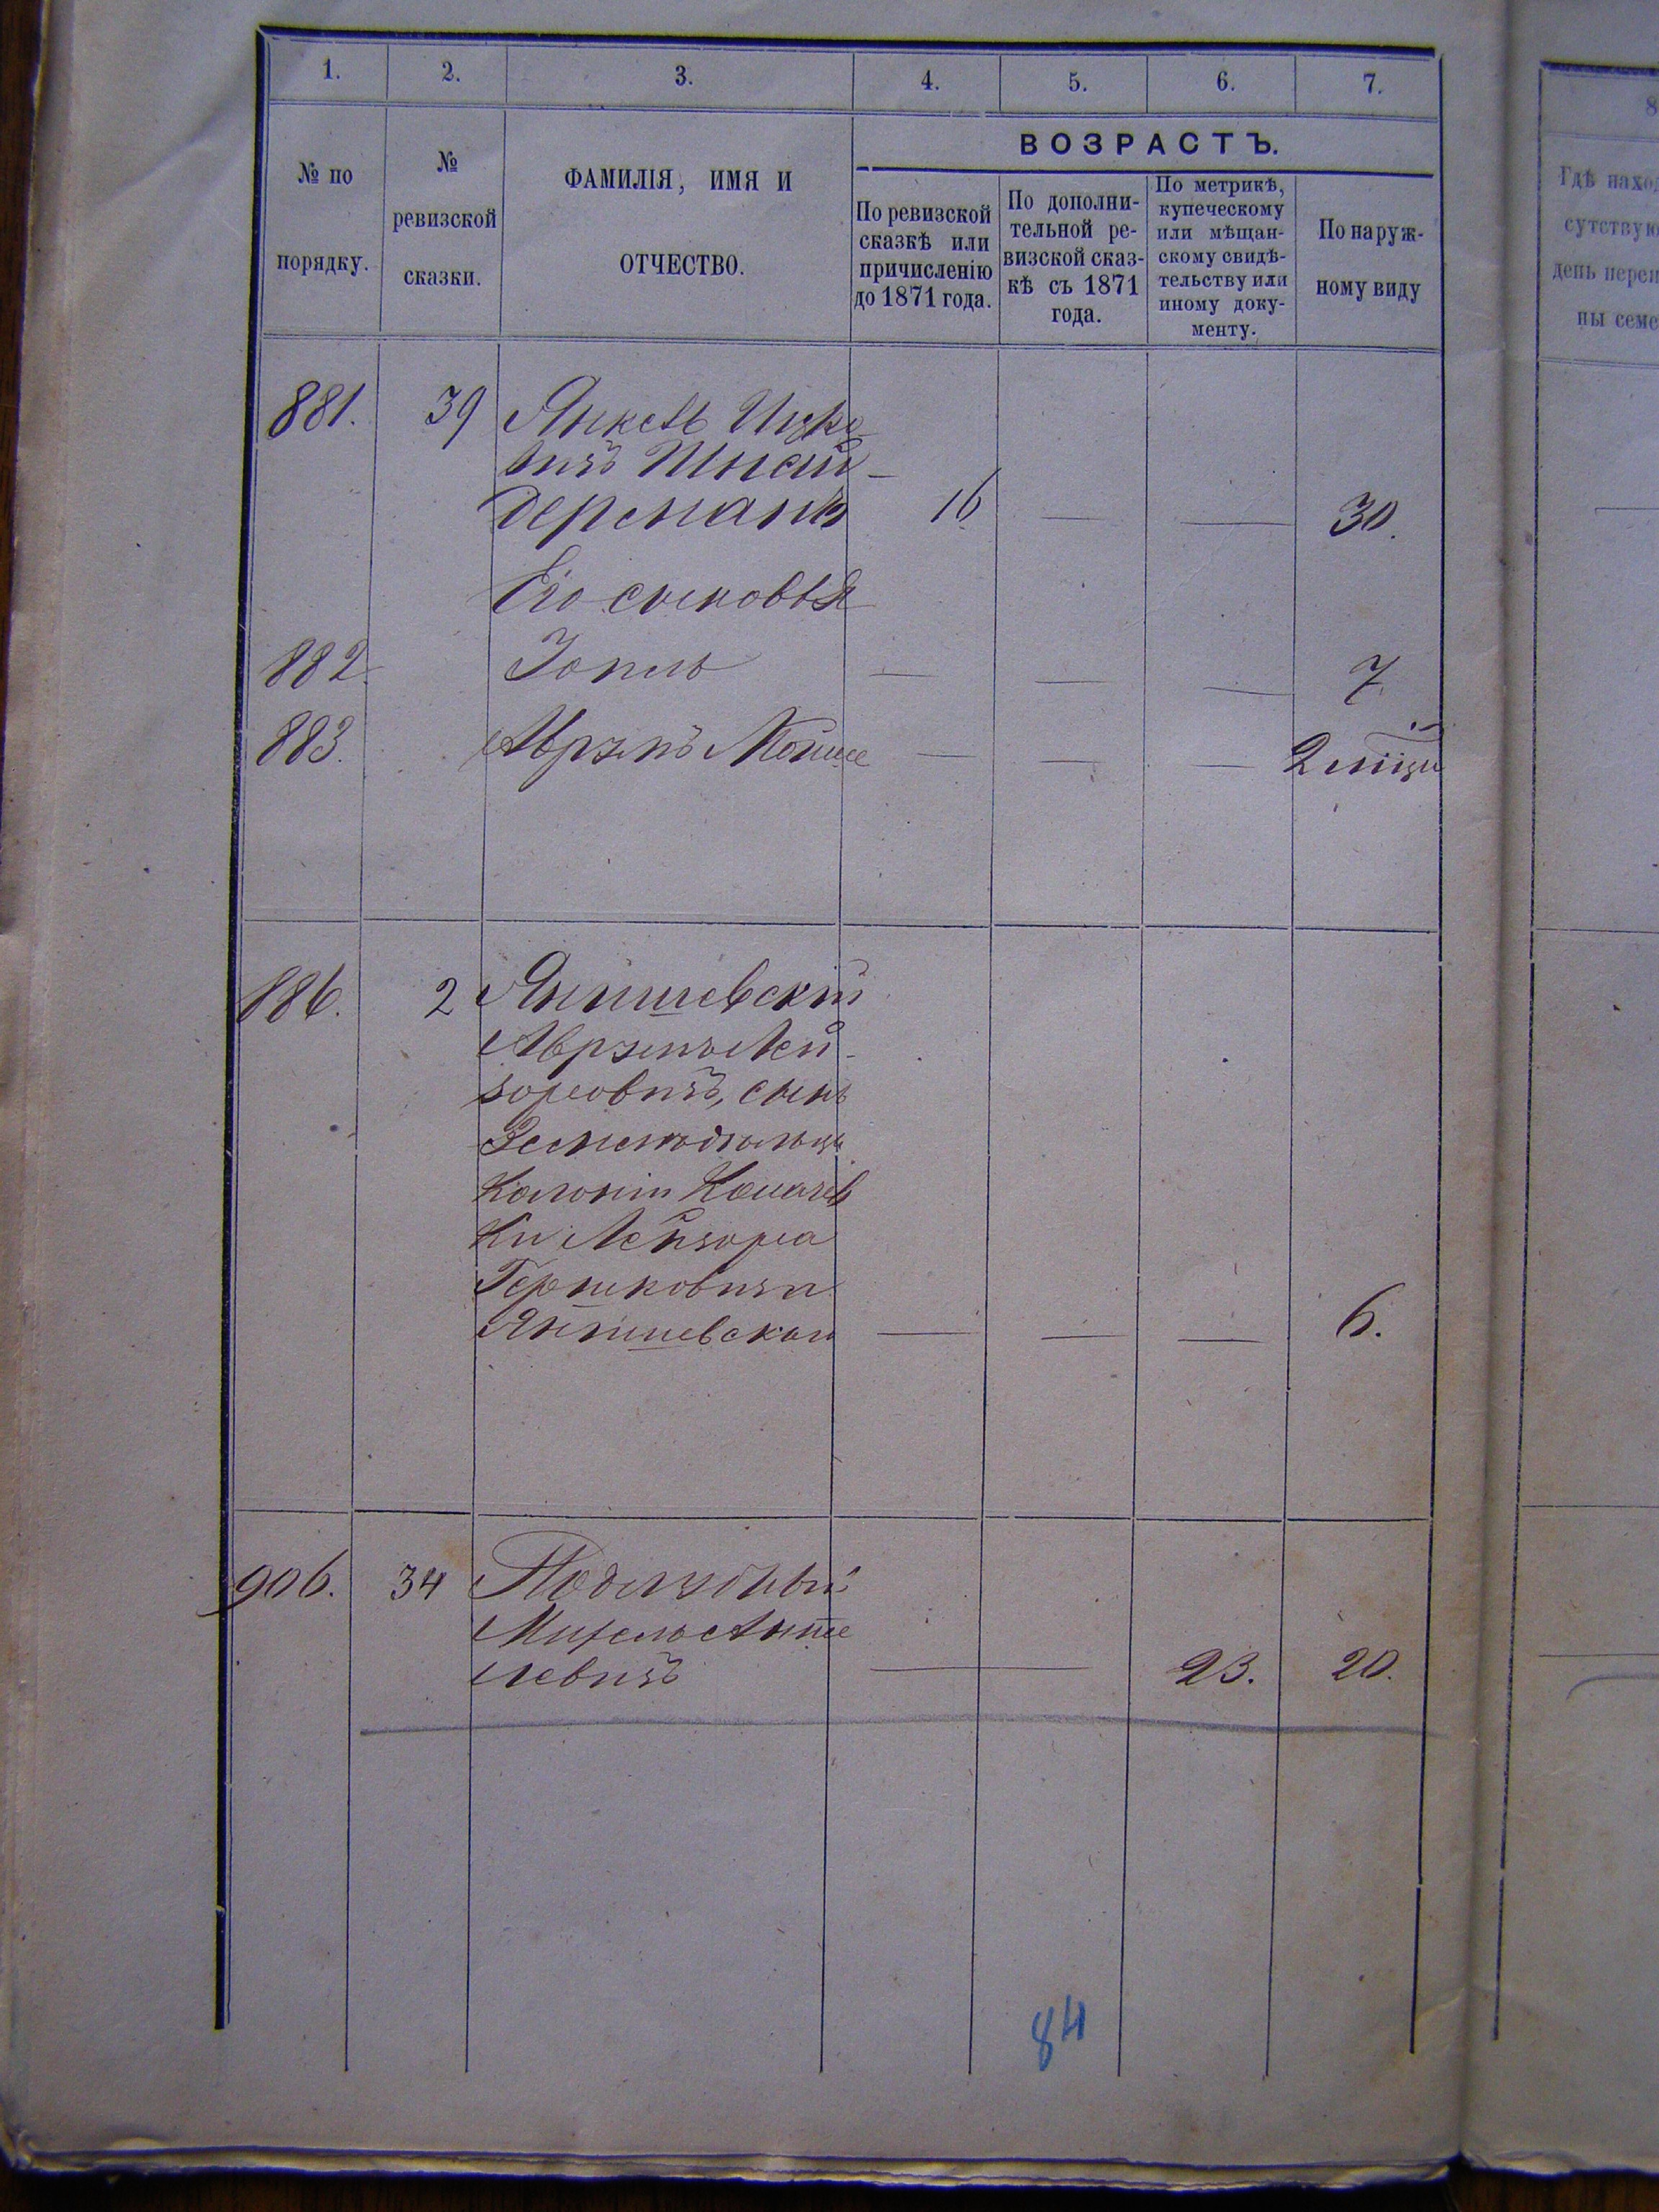 1. 2. 3. 4. 5. 6. 7.
№ по порядку.
№ ревизской сказки.
ФАМИЛІЯ, ИМЯ И ОТЧЕСТВО.
ВОЗРАСТЪ.
По ревизской сказкѣ или причисленію до 1871 года.
По дополни-тельной ре-визской сказ-кѣ съ 1871 года.
По метрикѣ, купеческому или мѣщан-скому свидѣ-тельству или иному доку-менту.
По наруж-ному виду
881. 39 Янкель Ицко
вичъ Шнай-
дерманъ 16 — — 30.
Его сыновья
882. — — — 7.
883. Аврумъ Мойше — — — 2 мѣсяц
886. 2 Янишевскій
Аврумъ Лей-
зоровичъ, сынъ
Земледѣльца
Колоніи
ки Лейзора
Гершковича
Янишевскаго — — — 6.
906. 34
левичъ — — 23. 20.
84
8
Гдѣ наход
сутствую
день переп
ны семе